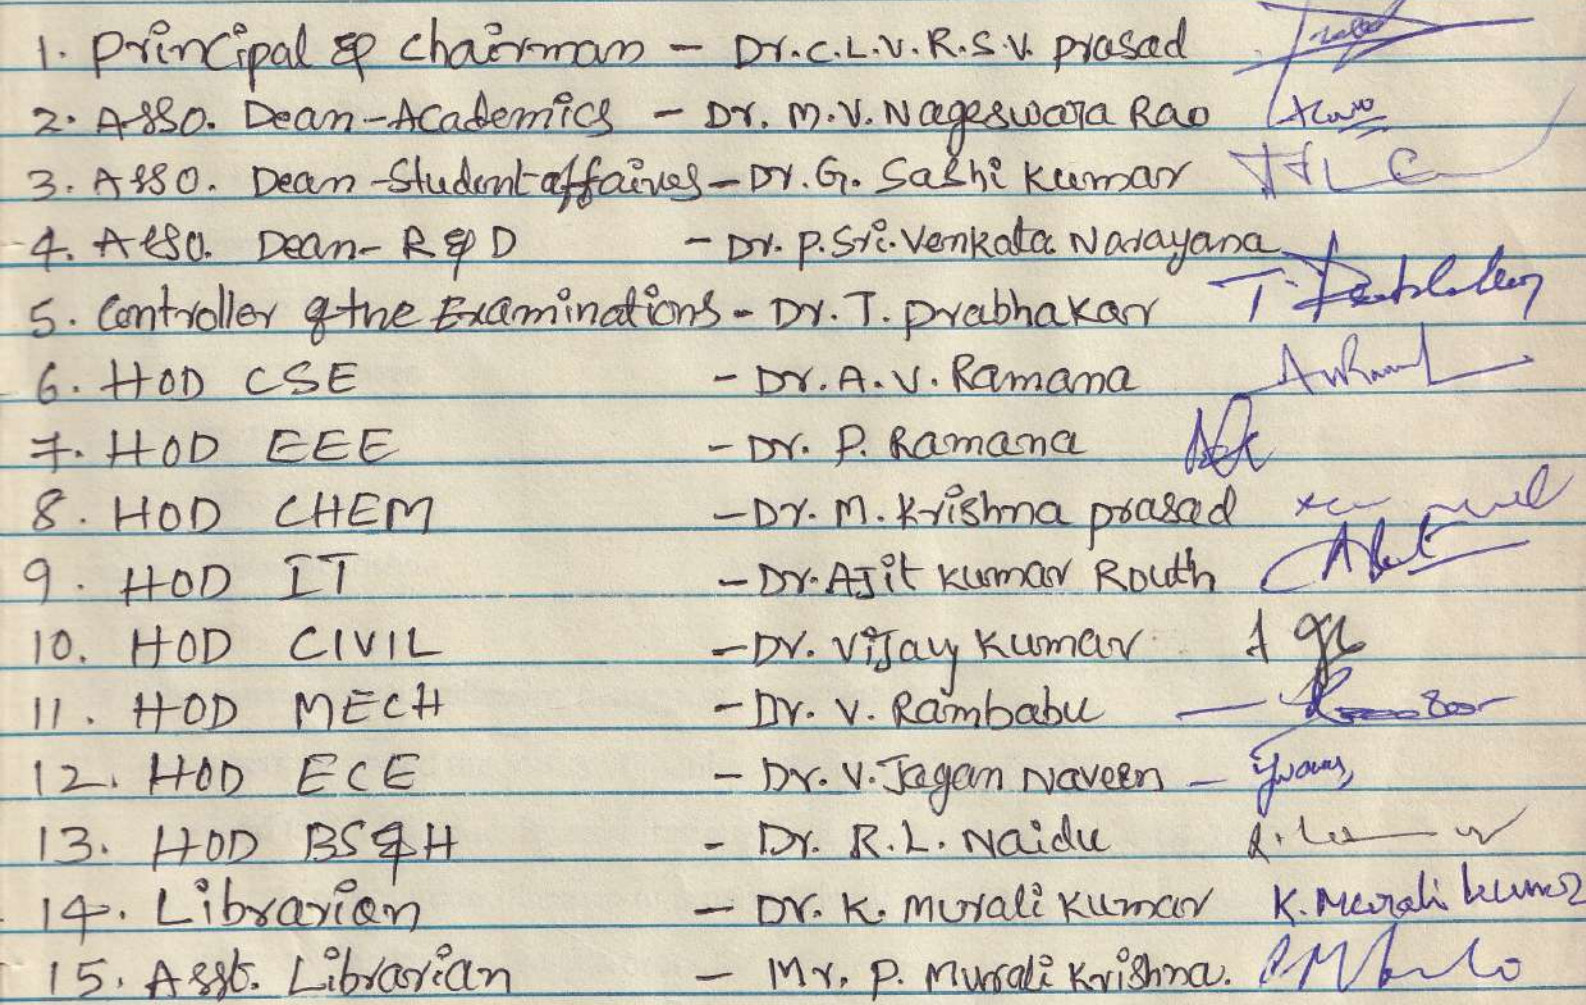 1. Principal & Chairman - Dr.C.L.V.R.S.V. Prasad
2. Asso. Dean-Academics - Dr. M.V. Nageswara Rao
3. Asso. Dean-Student affaires - Dr. G. Sashi Kumar
4. Asso. Dean- R&D - Dr. P. Sri. Venkata Narayana
5. Controller of the Examinations - Dr. T. Prabhakar T. Prabhakar
6. HOD CSE - Dr. A.V. Ramana
7. HOD EEE - Dr. P. Ramana
8. HOD CHEM - Dr. M. Krishna Prasad
9. HOD IT - Dr. Ajit Kumar Routh
10. HOD CIVIL - Dr. Vijay Kumar
11. HOD MECH - Dr. V. Rambabu
12. HOD ECE - Dr. V. Jagan Naveen -
13. HOD BS&H - Dr. R.L. Naidu
14. Librarian - Dr. K. Murali Kumar K. Murali Kumar
15. Asst. Librarian - Mr. P. Murali Krishna.